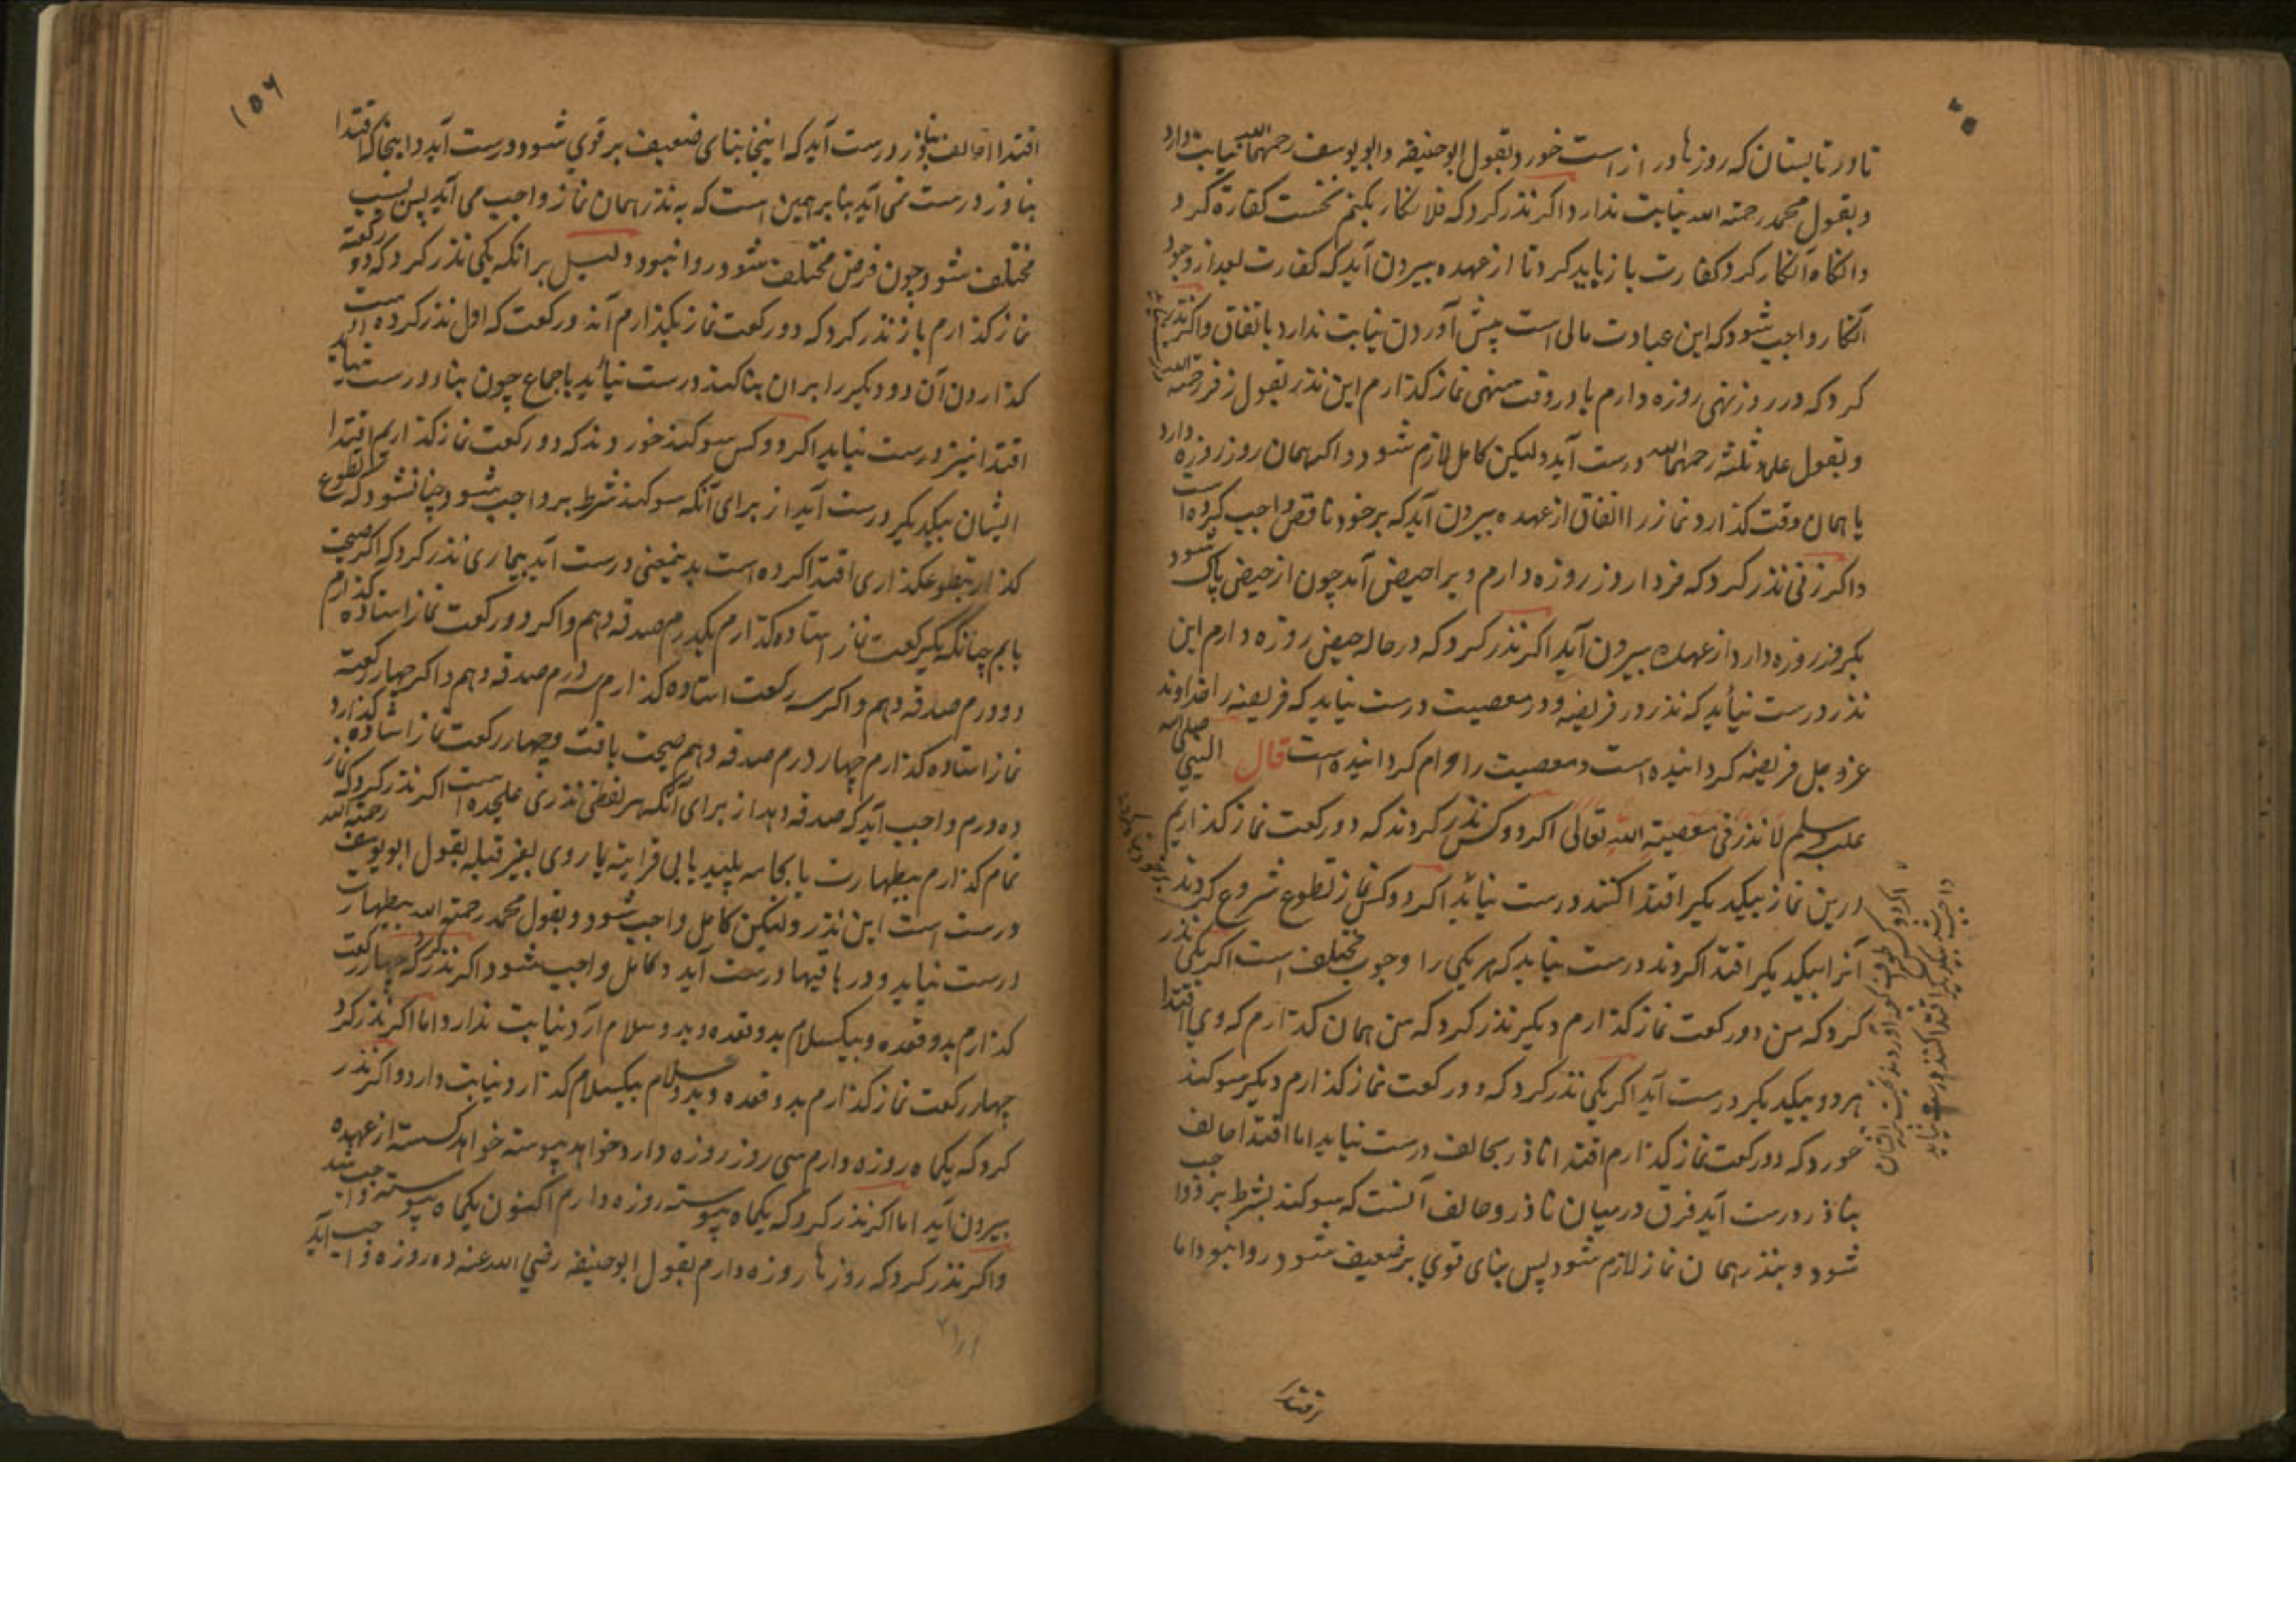 تا در تابستان که روزها دراز است خورد بقول ابو حنیفه و ابو یوسف رحمهما الله نیابت دارد
و بقول محمد رحمته الله نیابت ندارد اکر نذر کرد که فلان کار بکنم نخست کفارة کرد
وانکاه آنکار کرد کفارت باز باید کرد تا از عهده بیرون آید که کفارت بعد از وجود
آنکار واجب شود که این عبادت مالی است پیش آوردن نیابت ندارد باتفاق واکر نذر
کرد که در روز نهی روزه دارم یا در وقت منهی نماز کذارم این نذر بقول زفر رحمه الله
و بقول علماء ثلثه رحمهم الله درست آید ولیکن کامل لازم شود و اکر همان روز روزه دارد
یا همان وقت کذارد نماز را اتفاق از عهده بیرون آید که بر خود ناقص واجب کرده است
واکر زنی نذر کرد که فردا روز روزه دارم ویرا حیض آمد چون از حیض پاک شود
یکروز روزه دارد از عهده بیرون آید اکر نذر کرد که در حاله حیض روزه دارم این
نذر درست نیاید که نذر در فریضه و در معصیت درست نیاید که فریضه را خداوند
عز و جل فریضه کردانیده است و معصیت را حرام کردانیده است قال النبی صلی الله
علیه وسلم لا نذر فی معصیة الله تعالی اکر دو کس نذر کردند که دو رکعت نماز کذاریم
درین نماز بیکدیکیر اقتدا کنند درست نیاید اکر دو کس نماز تطوع شروع کردند
آنرا بیکدیکیر اقتدا کردند درست نیاید که هر یکی را وجوب مختلف است اکر یکی نذر
کرد که من دو رکعت نماز کذارم دیکیر نذر کرد که من همان کذارم که وی اقتدا
هر دو بیکدیکیر درست آید اکر یکی نذر کرد که دو رکعت نماز کذارم دیکیر سوکند
خورد که دو رکعت نماز کذارم اقتدا ناذر بحالف درست نیاید اما اقتدا حالف
بناذر درست آید فرق درمیان ناذر و حالف آنست که بسوکند بشرط بر واجب
شود و بنذر همان نماز لازم شود پس بنای قوی بر ضعیف شود روا نبود اما
اقتدا
۱۵۶
اقتدا حالف بناذر درست آید که اینجا بنای ضعیف بر قوی شود درست آید و اینجا که اقتدا
بناذر درست نمی آید بنابر همین است که به نذر همان نماز واجب می آید پس بسبب
مختلف شود چون فرض مختلف شود روا نبود دلیل بر انکه یکی نذر کرد که دو رکعت
نماز کذارم باز نذر کرد که دو رکعت نماز بکذارم آن دو رکعت که اول نذر کرده است
کذاردن آن دو دیکیر را بران بنا کند درست نیاید باجماع چون بنا درست نیاید
اقتدا نیز درست نیاید اکر دو کس سوکند خوردند که دو رکعت نماز کذاریم اقتدا
ایشان بیکدیکیر درست آید از برای آنکه سوکند شرط بر واجب شود چنانشود که تطوع
کذار بتطوع کذاری اقتدا کرده است بدینمعنی درست آید بیماری نذر کرد که اکر صحت
یابم چنانکه یکرکعت نماز استاده کذارم یکدرم صدقه دهم و اکر دو رکعت نماز استاده کذارم
دو درم صدقه دهم و اکر سه رکعت استاده کذارم سه درم صدقه دهم و اکر چهار رکعت
نماز استاده کذارم چهار درم صدقه دهم صحت یافت و چهار رکعت نماز استاده کذارد
ده درم واجب آید که صدقه دهد از برای آنکه هر لفظی نذری علیحده است اکر نذر کرد که نماز
تمام کذارم بیطهارت یا بجامه پلید یا بی قرایته یا روی بغیر قبله بقول ابو یوسف رحمته الله
درست است این نذر ولیکن کامل واجب شود و بقول محمد رحمته الله بیطهارت
درست نیاید و در باقیها درست آید و کامل واجب شود اکر نذر کرد که چهار رکعت
کذارم بدو قعده و بیکسلام بدو قعده و بدو سلام آرد نیابت ندارد اما اکر نذر کرد
چهار رکعت نماز کذارم بدو قعده و بدو سلام بیکسلام کذارد نیابت دارد واکر نذر
کرد که یکماه روزه دارم سی روز روزه دارد خواهد پیوسته خواهد کسسته از عهده
بیرون آید اما اکر نذر کرد که یکماه پیوسته روزه دارم اکنون یکماه پیوسته واجب شد
واکر نذر کرد که روزها روزه دارم بقول ابو حنیفه رضی الله عنه ده روزه واجب آید